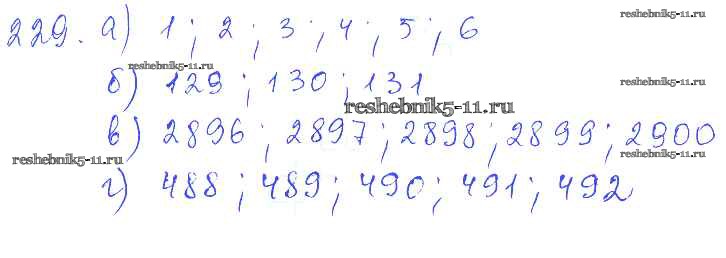 reshebnik5-11.ru
229. а) 1 ; 2 ; 3 ; 4 ; 5 ; 6
reshebnik5-11.ru
б) 129 ; 130 ; 131
reshebnik5-11.ru
reshebnik5-11.ru
в) 2896 ; 2897 ; 2898 ; 2899 ; 2900
reshebnik5-11.ru
reshebnik5-11.ru
г) 488 ; 489 ; 490 ; 491 ; 492